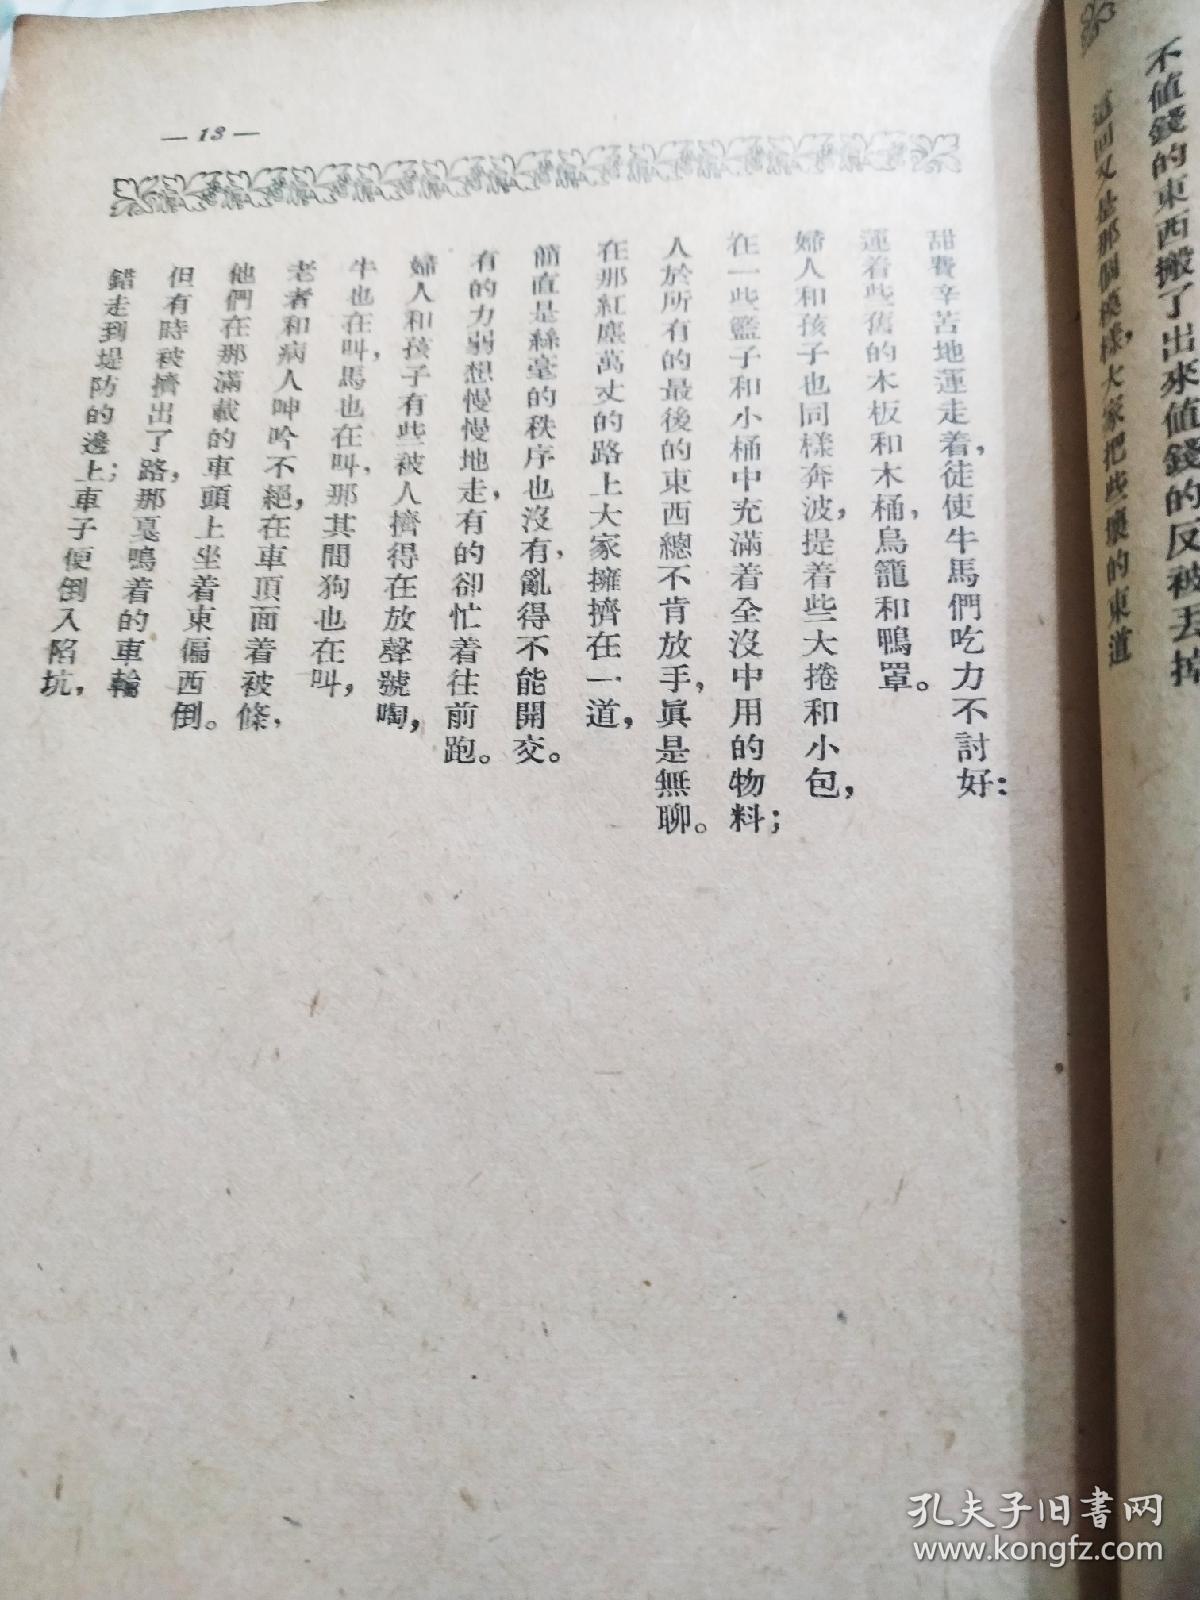 不值錢的東西搬了出來值錢的反被丟掉
這回又是那個模樣，大家把些壞的東道
— 13 —
甜費辛苦地運走着，徒使牛馬們吃力不討好：
運着些舊的木板和木桶，鳥籠和鴨罩。
婦人和孩子也同樣奔波，提着些大捲和小包，
在一些籃子和小桶中充滿着全沒中用的物料；
人於所有的最後的東西總不肯放手，眞是無聊。
在那紅塵萬丈的路上大家擁擠在一道，
簡直是絲毫的秩序也沒有，亂得不能開交。
有的力弱想慢慢地走，有的卻忙着往前跑。
婦人和孩子有些被人擠得在放聲號啕，
牛也在叫，馬也在叫，那其間狗也在叫，
老者和病人呻吟不絕，在車頂面着被條，
他們在那滿載的車頭上坐着東偏西倒。
但有時被擠出了路，那戛鳴着的車輪
錯走到堤防的邊上；車子便倒入陷坑，
孔夫子旧书网
www.kongfz.com